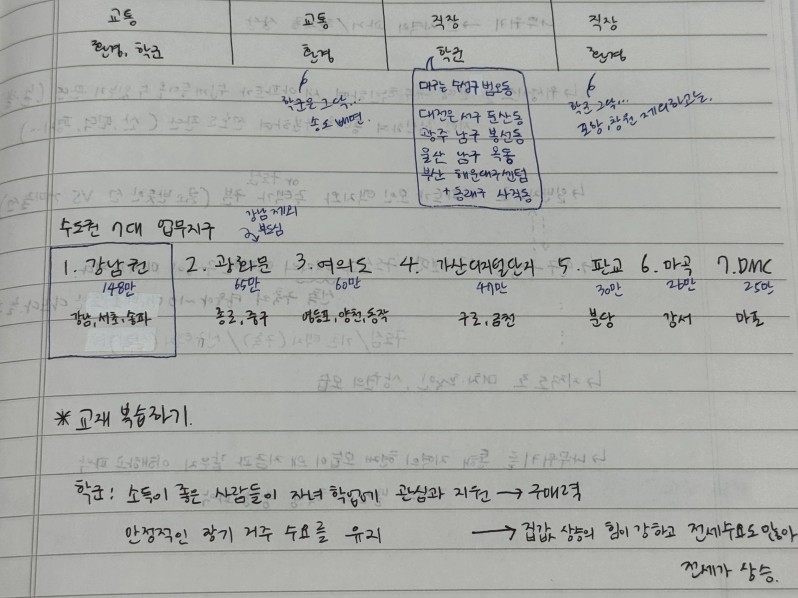 교통 교통 직장 직장
환경, 학군 환경 학군 환경
학군은 그닥...
송도 빼면.
대구는 수성구 범어동
대전은 서구 둔산동
광주 남구 봉선동
울산 남구 옥동
부산 해운대구 센텀
+ 동래구 사직동
학군 그닥...
포항, 창원 제외하고는.
수도권 7대 업무지구
강남 제외
부도심
1. 강남권 2. 광화문 3. 여의도 4. 가산디지털단지 5. 판교 6. 마곡 7. DMC
148만 65만 60만 47만 30만 26만 25만
강남, 서초, 송파 종로, 중구 영등포, 양천, 동작 구로, 금천 분당 강서 마포
* 교재 복습하기.
학군: 소득이 좋은 사람들이 자녀 학업에 관심과 지원 → 구매력
안정적인 장기 거주 수요를 유지 → 집값 상승의 힘이 강하고 전세수요도 많아
전세가 상승.